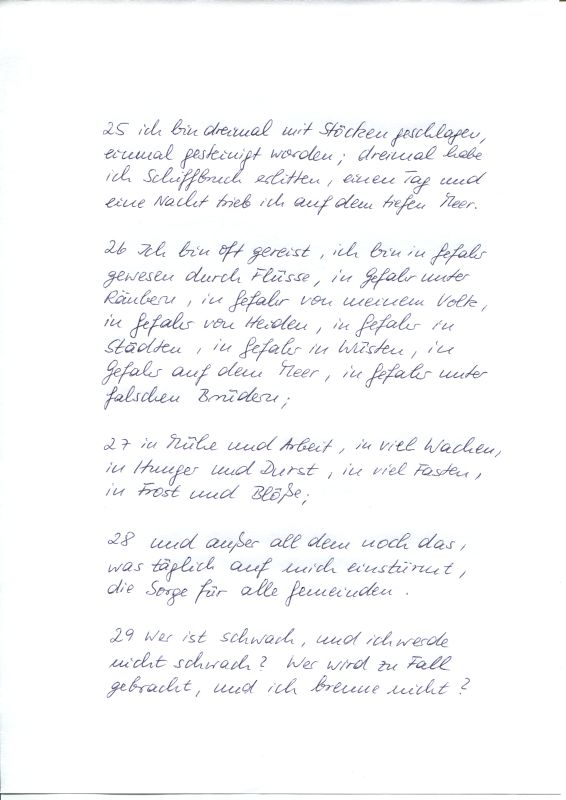 25 ich bin dreimal mit Stöcken geschlagen,
einmal gesteinigt worden; dreimal habe
ich Schiffbruch erlitten, einen Tag und
eine Nacht trieb ich auf dem tiefen Meer.
26 Ich bin oft gereist, ich bin in Gefahr
gewesen durch Flüsse, in Gefahr unter
Räubern, in Gefahr von meinem Volk,
in Gefahr von Heiden, in Gefahr in
Städten, in Gefahr in Wüsten, in
Gefahr auf dem Meer, in Gefahr unter
falschen Brüdern;
27 in Mühe und Arbeit, in viel Wachen,
in Hunger und Durst, in viel Fasten,
in Frost und Blöße;
28 und außer all dem noch das,
was täglich auf mich einstürmt,
die Sorge für alle Gemeinden.
29 Wer ist schwach, und ich werde
nicht schwach? Wer wird zu Fall
gebracht, und ich brenne nicht?